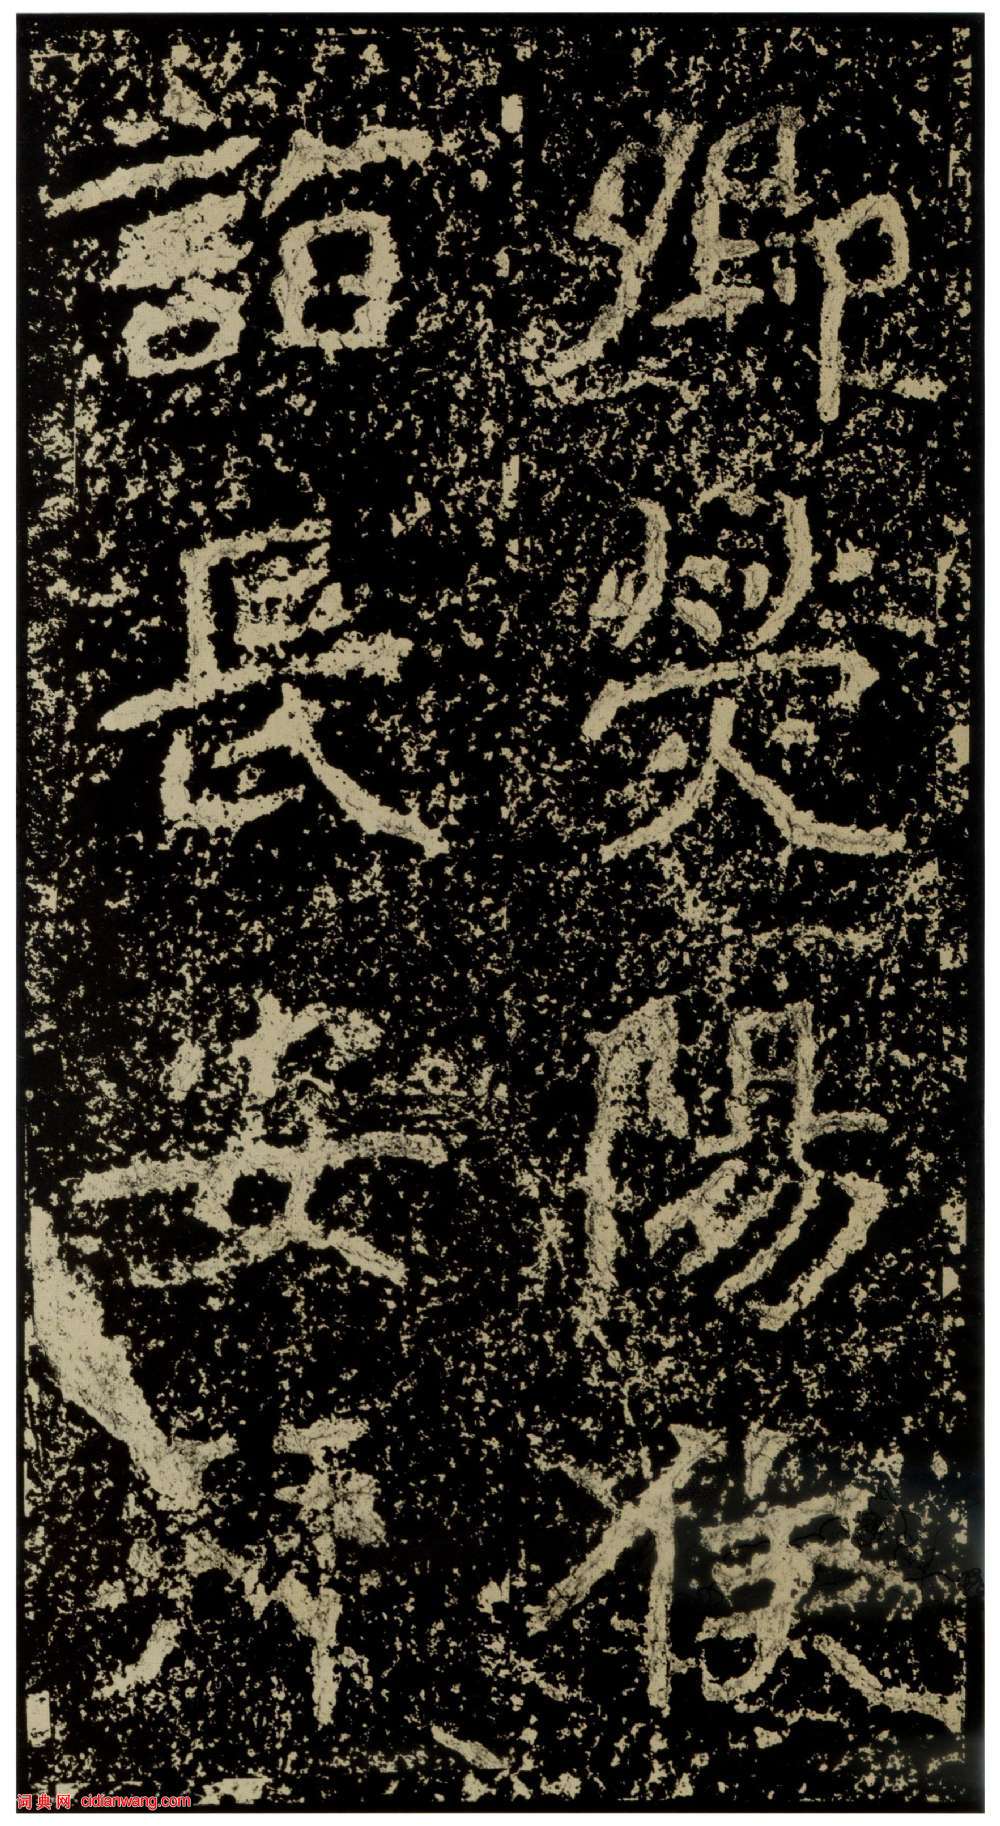 卿熒陽侯
詣長安拜
词典网 cidianwang.com